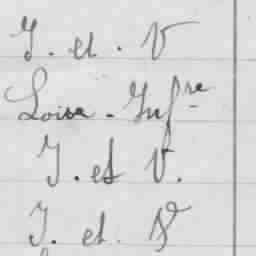 I. et. V
Loire-Infre
I. et V.
I. et. V